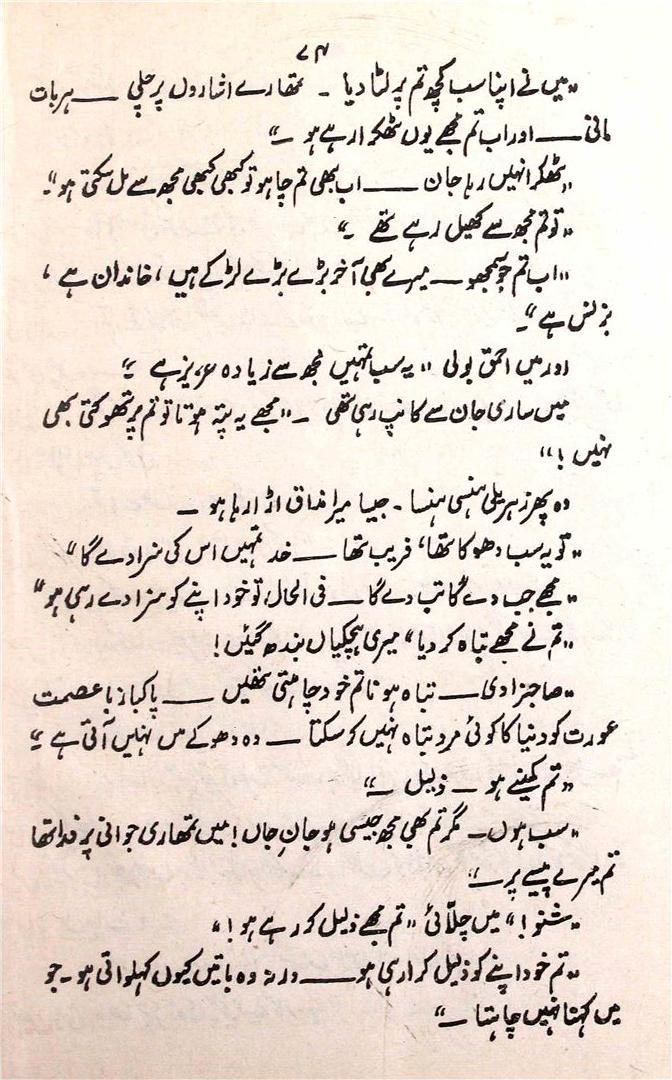 ۷۴
”میں نے اپنا سب کچھ تم پر لٹا دیا ۔ تمھارے اشاروں پر چلی ــــ ہر بات
مانی ــــ اور اب تم مجھے یوں ٹھکرا رہے ہو ۔“
”ٹھکرا نہیں رہا جان ــــ اب بھی تم چاہو تو کبھی کبھی مجھ سے مل سکتی ہو“۔
”تو تم مجھ سے کھیل رہے تھے ۔“
”اب تم جو سمجھو ــــ میرے بھی آخر بڑے بڑے لڑکے ہیں ، خاندان ہے ،
بزنس ہے“۔
اور میں احمق بولی ”یہ سب تمہیں مجھ سے زیادہ عزیز ہے ۔“
میں ساری جان سے کانپ رہی تھی ۔ ”مجھے یہ پتہ ہوتا تو تم پر تھوکتی بھی
نہیں !“
وہ پھر زہریلی ہنسی ہنسا ۔ جیسا میرا مذاق اڑا رہا ہو ۔
”تو یہ سب دھوکا تھا، فریب تھا ــــ خدا تمہیں اس کی سزا دے گا“
”مجھے جب دے گا تب دے گا ــــ فی الحال تو خود اپنے کو سزا دے رہی ہو“
”تم نے مجھے تباہ کر دیا“ میری ہچکیاں بندھ گئیں !
”صاحبزادی ــــ تباہ ہونا تم خود چاہتی تھیں ــــ پاکباز باعصمت
عورت کو دنیا کا کوئی مرد تباہ نہیں کر سکتا ــــ وہ دھوکے میں نہیں آتی ہے ۔“
”تم کمینے ہو ــــ ذلیل ۔“
”سب ہوں ۔ مگر تم بھی مجھ جیسی ہو جانِ جاں ! میں تمھاری جوانی پر فدا تھا
تم میرے پیسے پر ــــ“
”شنو !“ میں چلّائی ”تم مجھے ذلیل کر رہے ہو !“
”تم خود اپنے کو ذلیل کرا رہی ہو ــــ ورنہ وہ باتیں کیوں کہلواتی ہو ۔ جو
میں کہنا نہیں چاہتا ــــ“